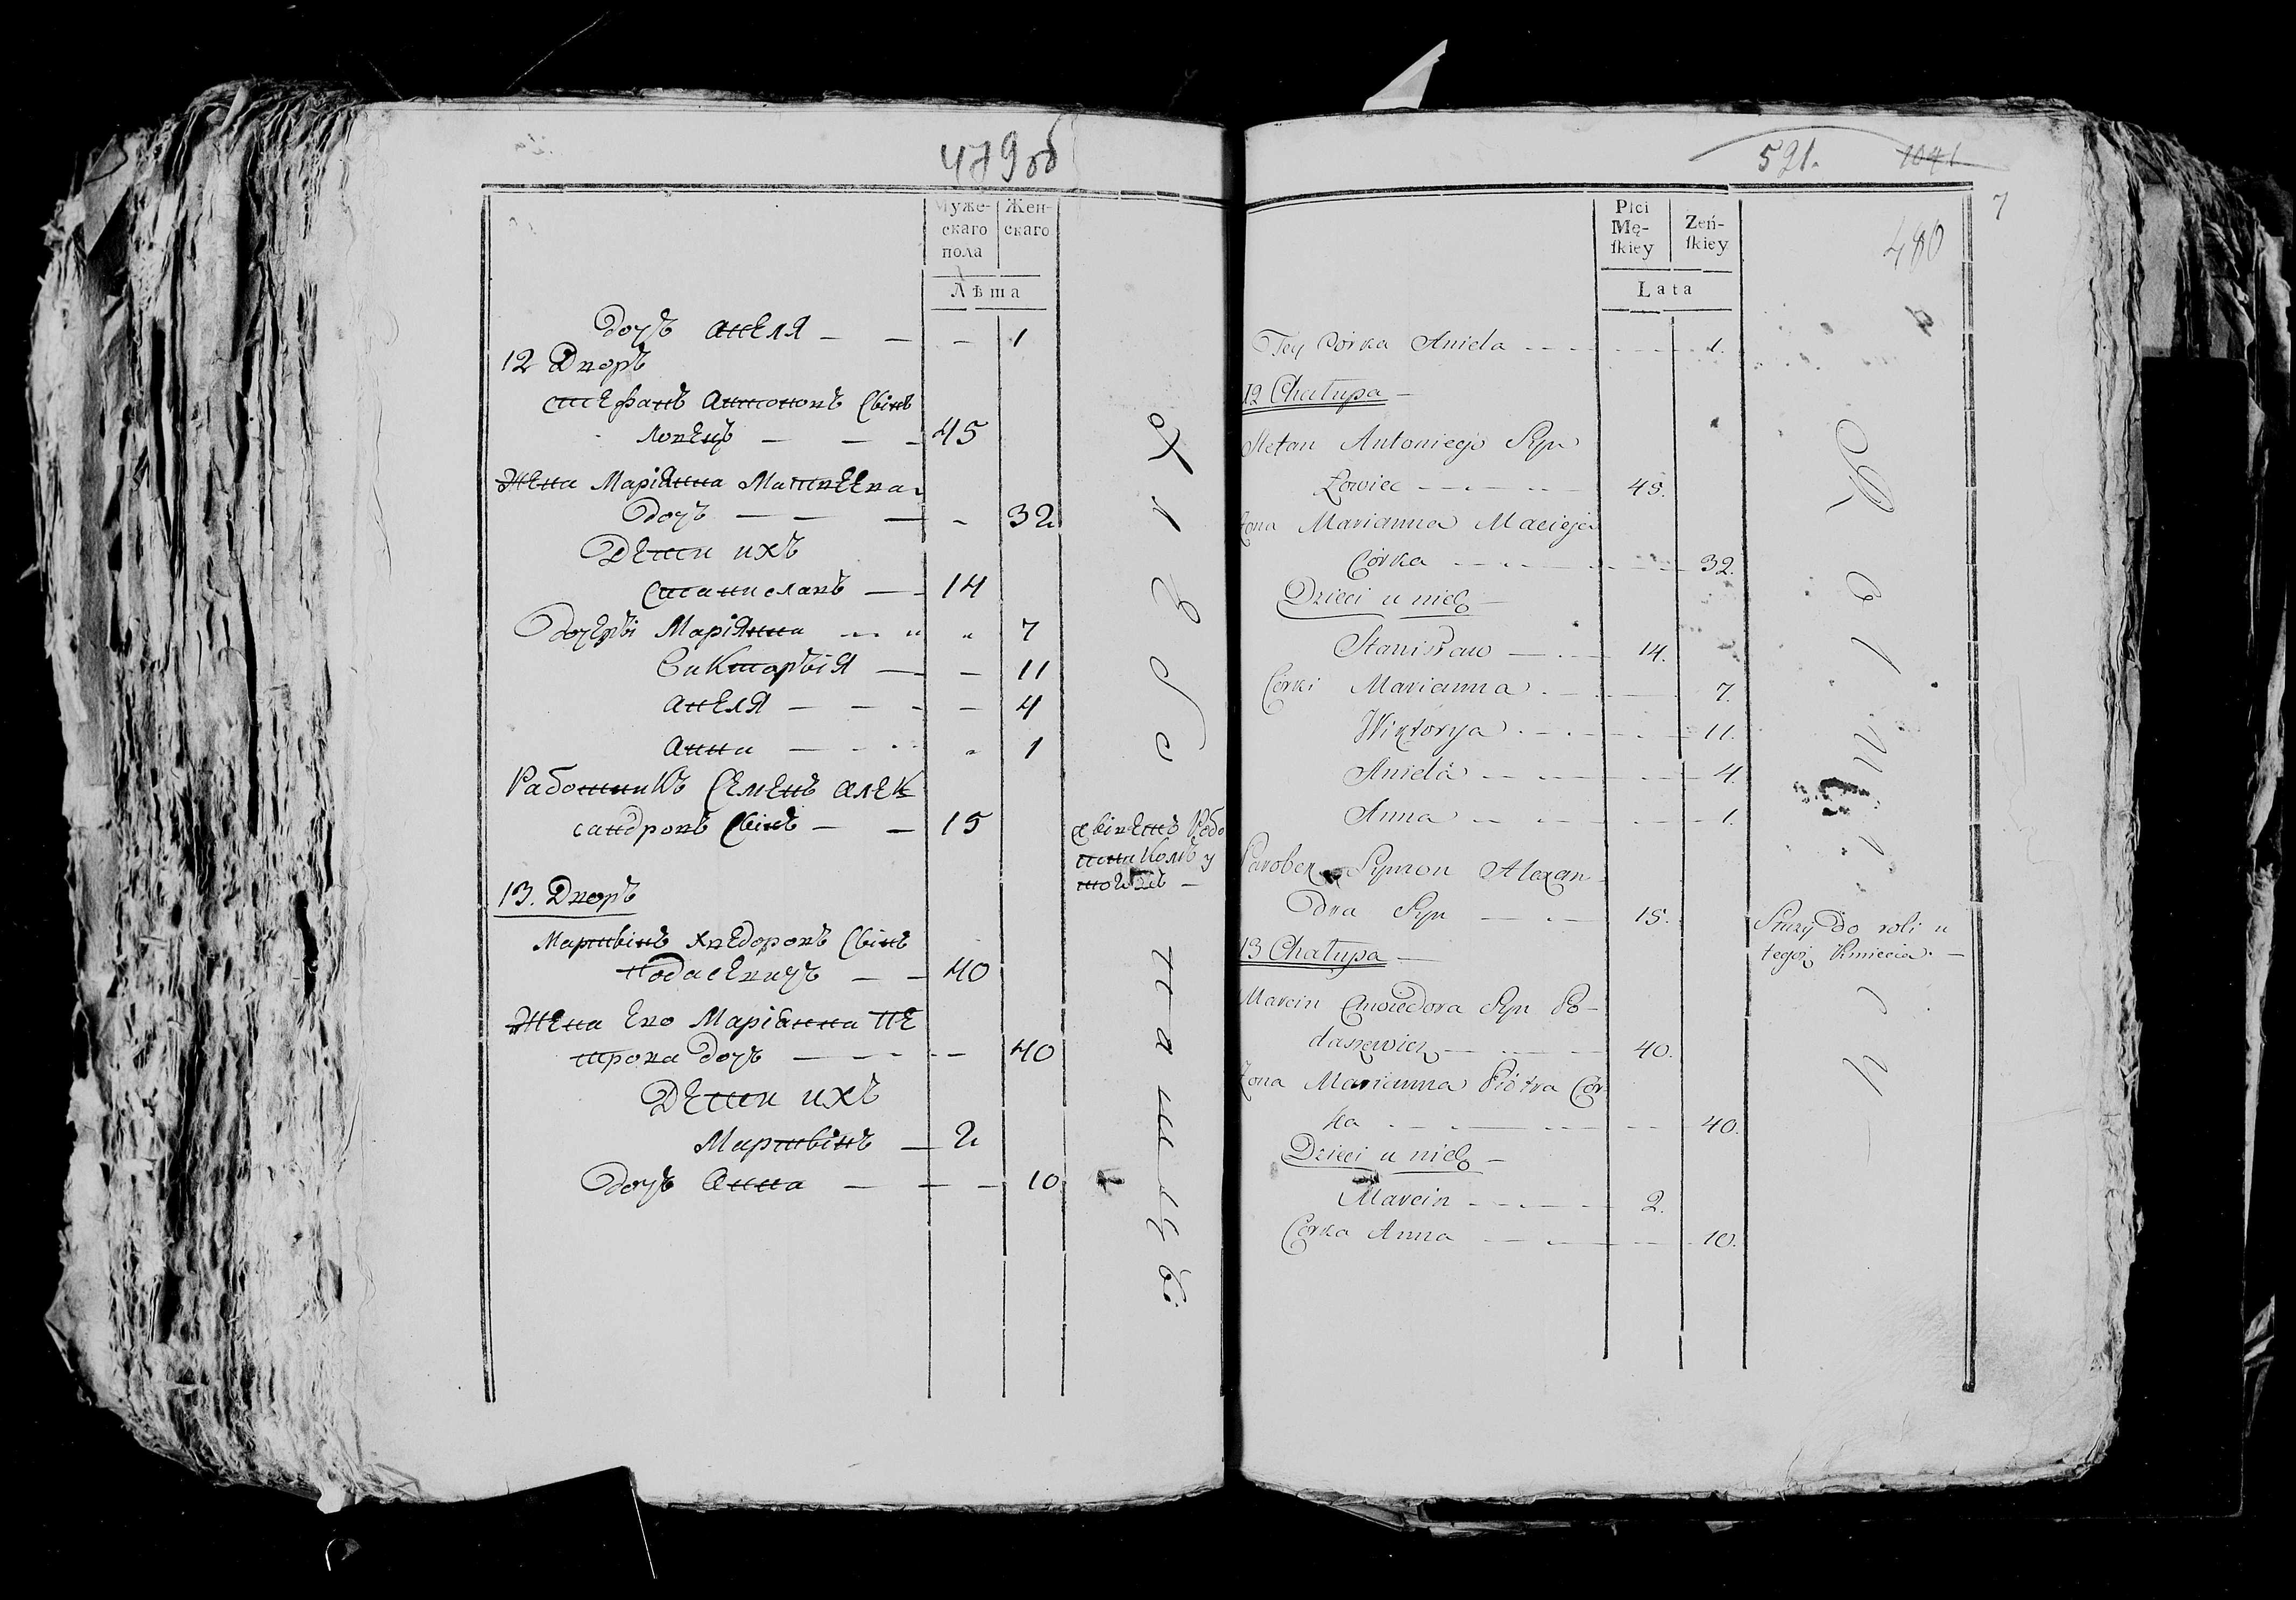 479об
Муже-
скаго
пола
Жен-
скаго
Лѣта
Дочь Анеля — — — 1
12 Дворъ
Стефанъ Антоновъ Сынъ
Ловецъ — — — 45
Жена Маріянна Матвеева
дочь — — — 32
Дети ихъ
Станиславъ — 14
Дочери Маріянна 7
Викторыія — — 11
Анеля — — — — 4
Анна — — — 1
Работникъ Семенъ Алек
сандровъ Сынъ — — 15
13. Дворъ
Мартинъ Хведоровъ Сынъ
40
Жена Ево Маріанна Пе
трова дочь — — — 40
Дети ихъ
Мартинъ — 2
Дочь Анна — — — 10
521. 1041
7
480
Płci
Mę-
ſkiey
Żeń-
ſkiey
Lata
Tey Córka Aniela 1.
12 Chałupa —
Stefan Antoniego Syn
Łowiec 45.
Żona Marianna Macieja
Córka 32.
Dzieci u nich —
Stanisław — 14.
Córki Marianna 7.
Wiktorya 11.
Aniela 4.
Anna 1.
Parobek Symon Alexan-
dra Syn — 15.
Służy do roli u
tegoż Kmiecia. —
13 Chałupa —
Marcin Chwiedora Syn Po-
daszewicz 40.
Żona Marianna Piotra Cór-
ka 40.
Dzieci u nich —
Marcin 2.
Córka Anna 10.